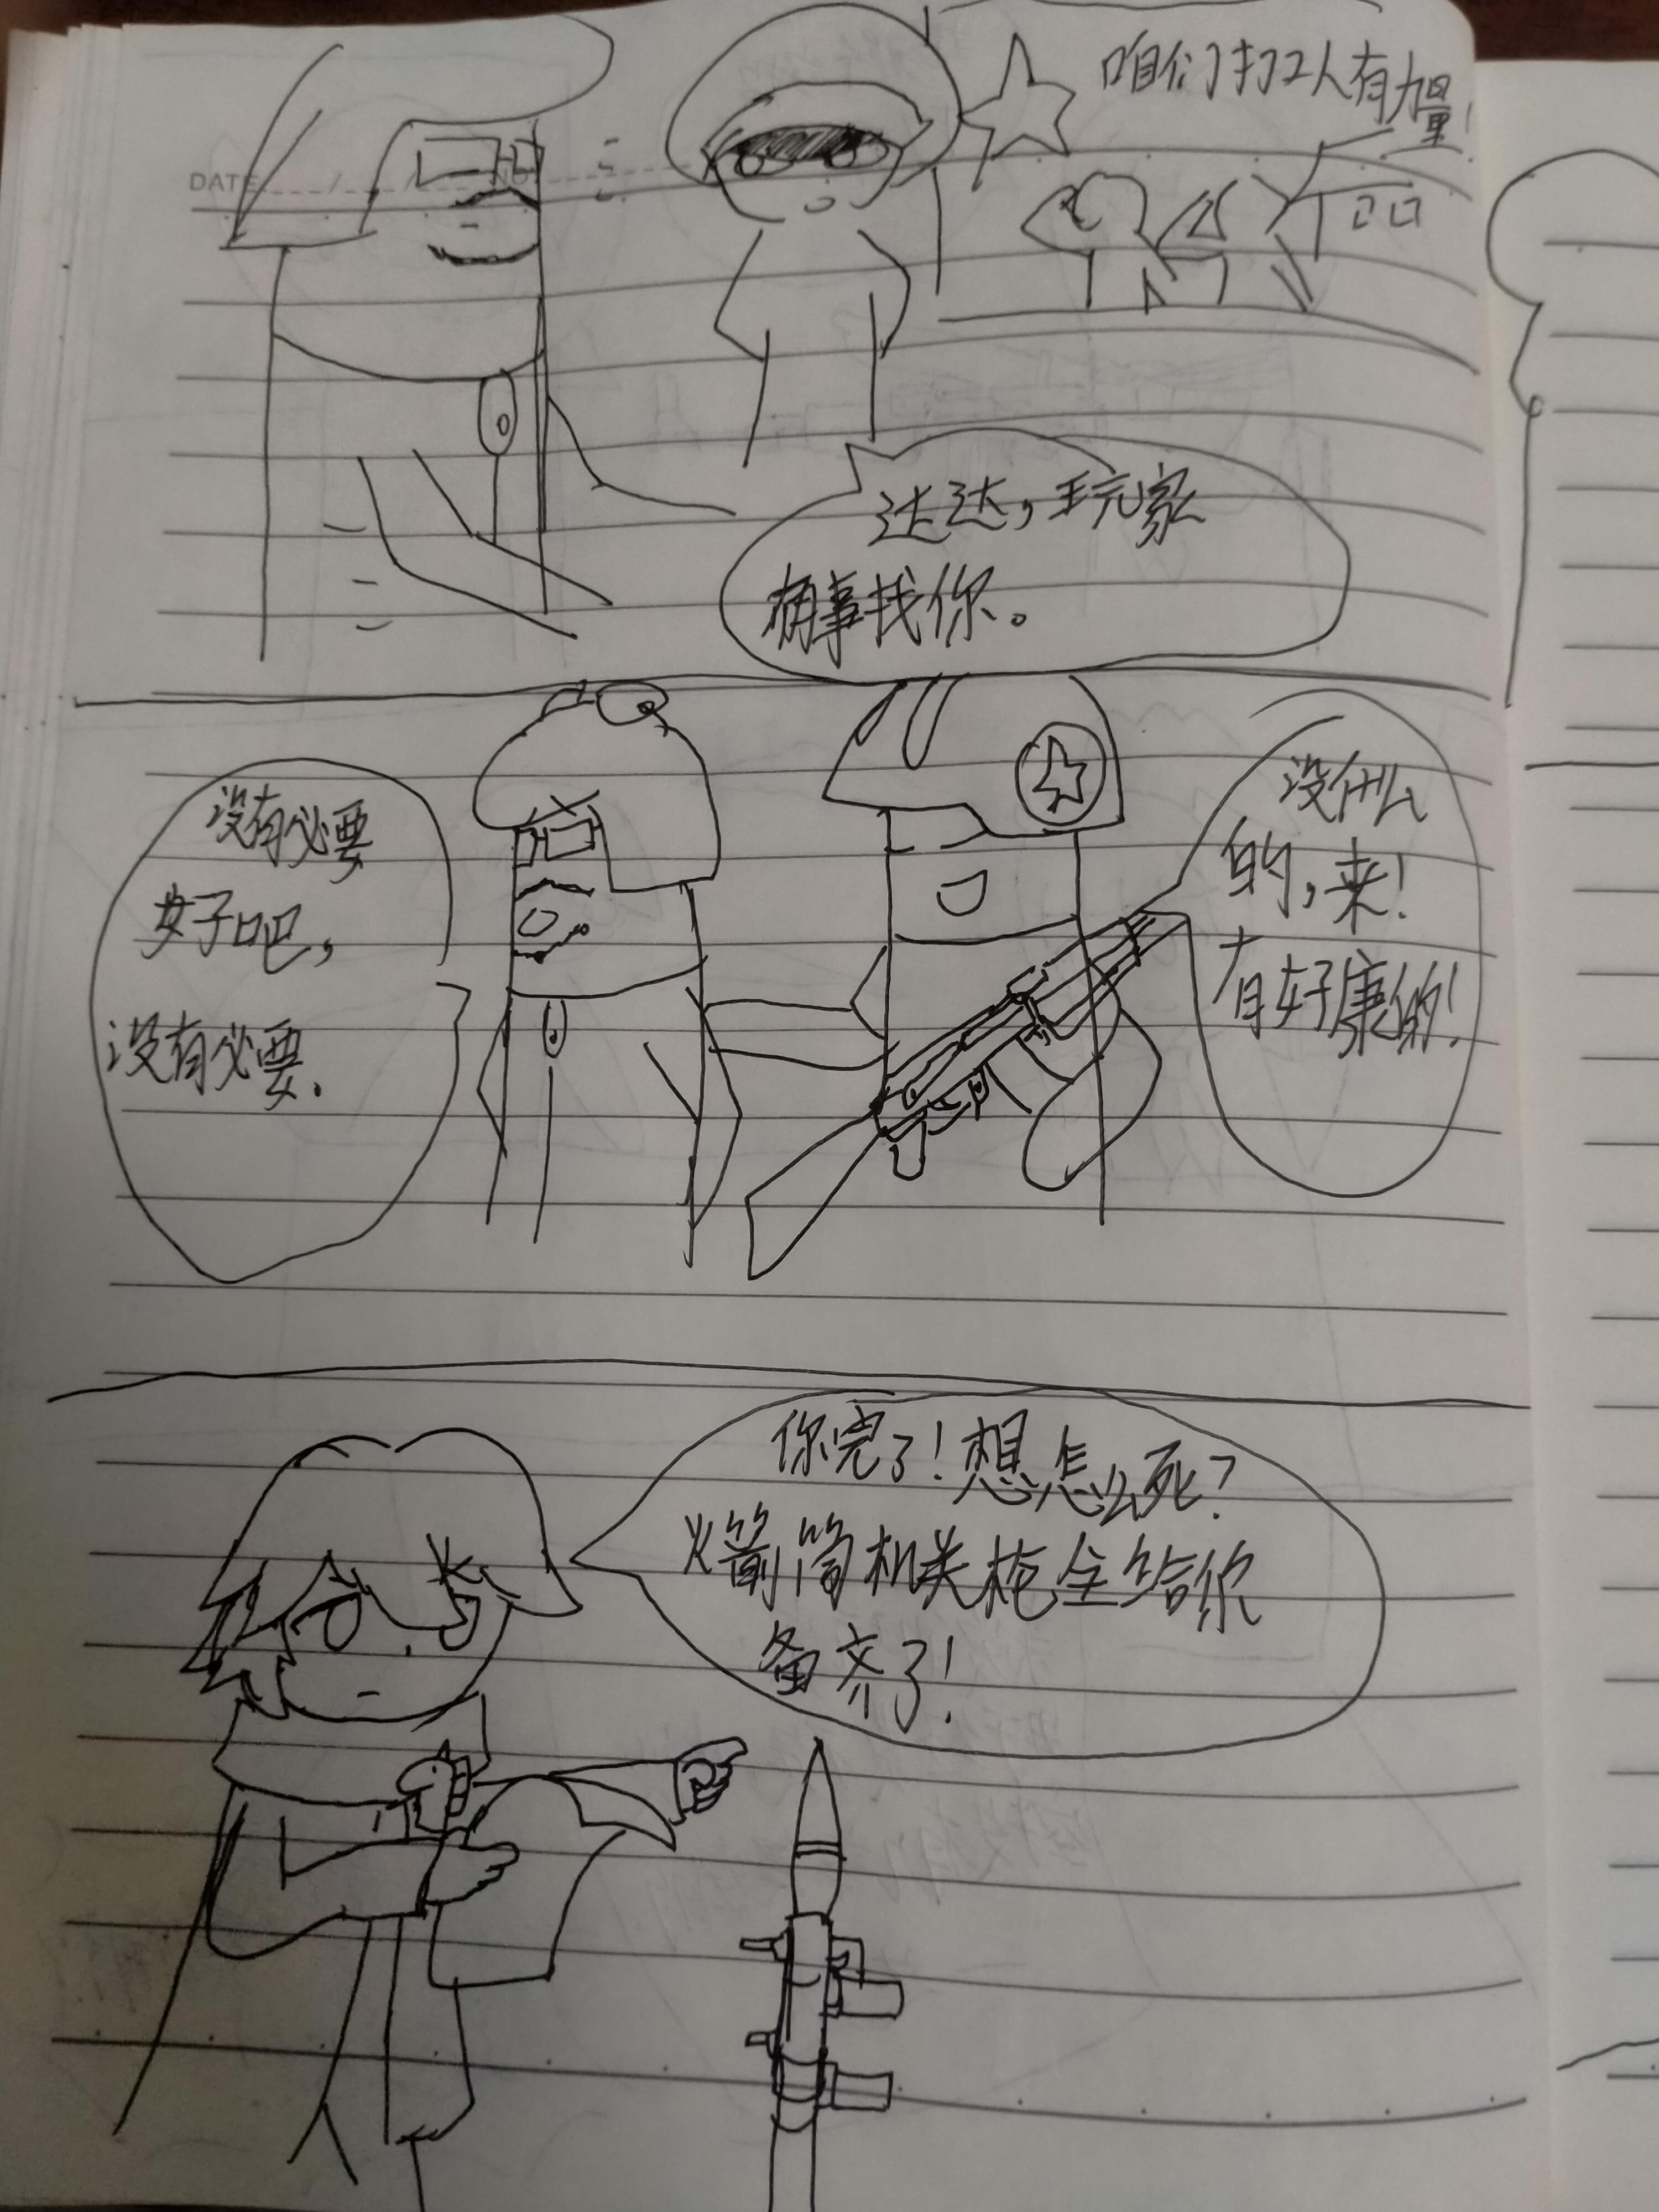 DATE / / NO.
咱们打工人有力量!
达达,玩家
有事找你。
没有必要
好吧,
没有必要.
没什么
的,来!
有好康的!
你完了!想怎么死?
火箭筒机关枪全给你
备齐了!